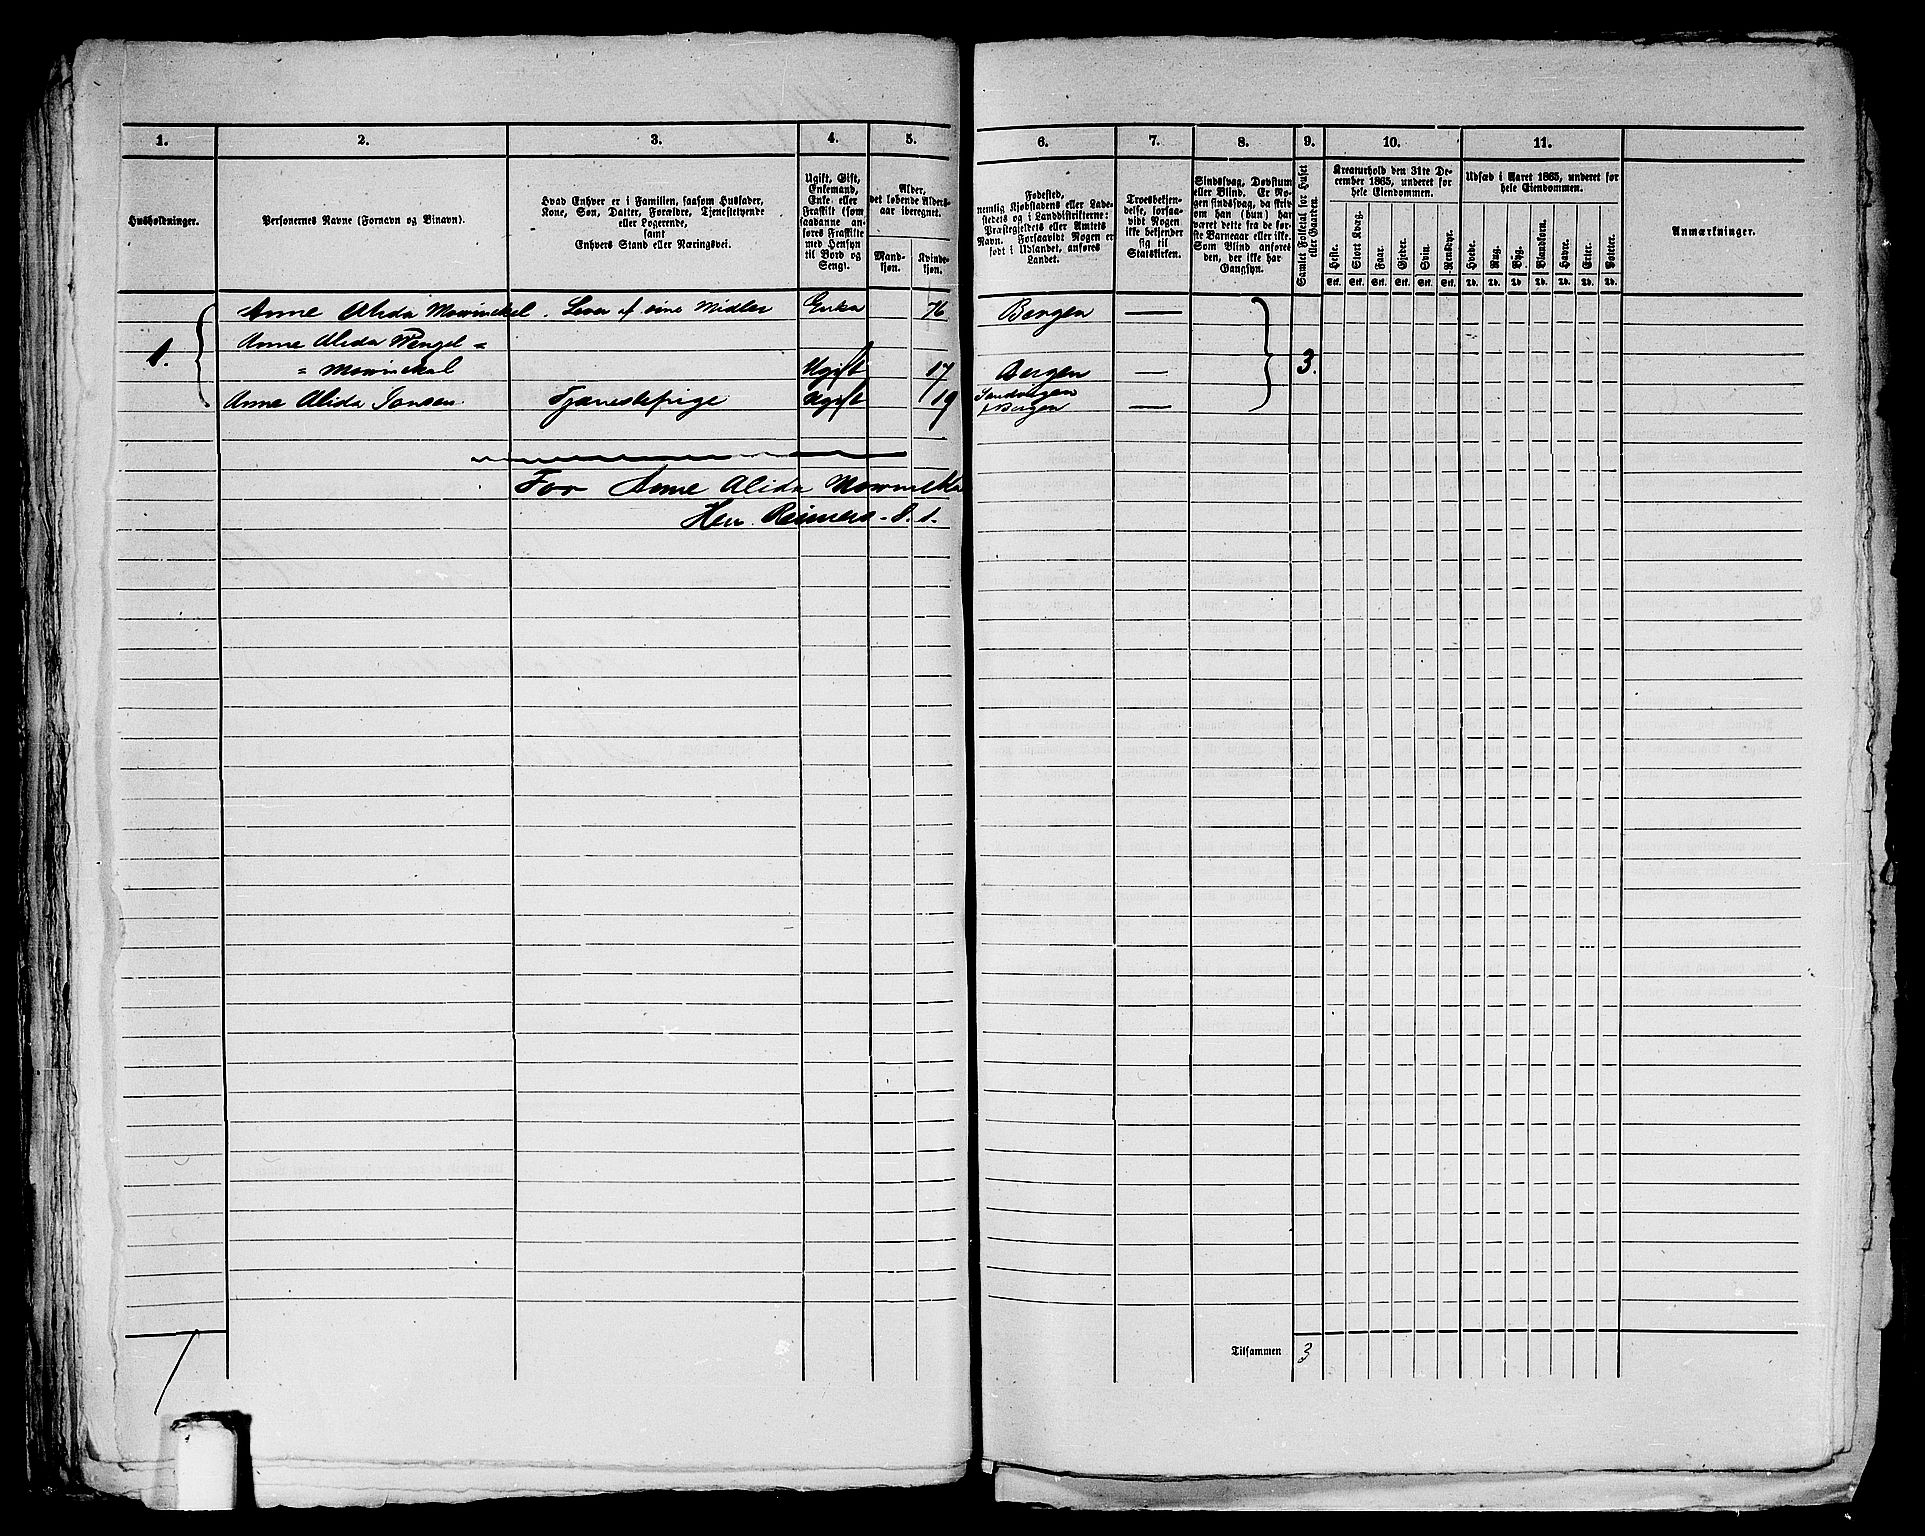 1.
2.
3.
4.
5.
6.
7.
8.
9.
10.
11.
Husholdninger.
Personernes Navne (Fornavn og Binavn).
Hvad Enhver er i Familien, saasom Husfader,
Kone, Søn, Datter, Forældre, Tjenestetyende
eller Logerende,
samt
Enhvers Stand eller Næringsvei.
Ugift, Gift,
Enkemand,
Enke eller
Fraskilt (som
saadanne an-
føres Fraskilte
med Hensyn
til Bord og
Seng).
Alder,
det løbende Alders-
aar iberegnet.
Mand-
kjøn.
Kvinde-
kjøn.
Fødested,
nemlig Kjøbstadens eller Lade-
stedets og i Landdistrikterne:
Præstegjeldets eller Amtets
Navn. Forsaavidt Nogen er
født i Udlandet, anføres
Landet.
Troesbekjen-
delse, forsaa-
vidt Nogen
ikke bekjender
sig til
Statskirken.
Sindssvag, Døvstum
eller Blind. Er No-
gen sindssvag, da skriv
om han (hun) har
været dette fra de før-
ste Barneaar eller ikke.
Som Blind anføres
den, der ikke har
Gangsyn.
Samlet Folketal for Huset
eller Gaarden.
Kreaturhold den 31te De-
cember 1865, underet for
hele Eiendommen.
Heste.
Stort Kvæg.
Faar.
Gjeder.
Svin.
Rensdyr.
Stk. Stk. Stk. Stk. Stk. Stk.
Udsæd i Aaret 1865, underet for
hele Eiendommen.
Hvede.
Rug.
Byg.
Blandkorn.
Havre.
Erter.
Poteter.
Td. Td. Td. Td. Td. Td. Td.
Anmærkninger.
1. Anne Alida Mowinckel. Lever af sine Midler Enke 76 Bergen —
Anne Alida Wengel =
= Mowinckel Ugift 17 Bergen — 3.
Anne Alida Jansen Tjenestepige Ugift 19 Sandvigen
/Bergen —
For Anne Alida Mowincke
Hen. Reimers.
Tilsammen 3